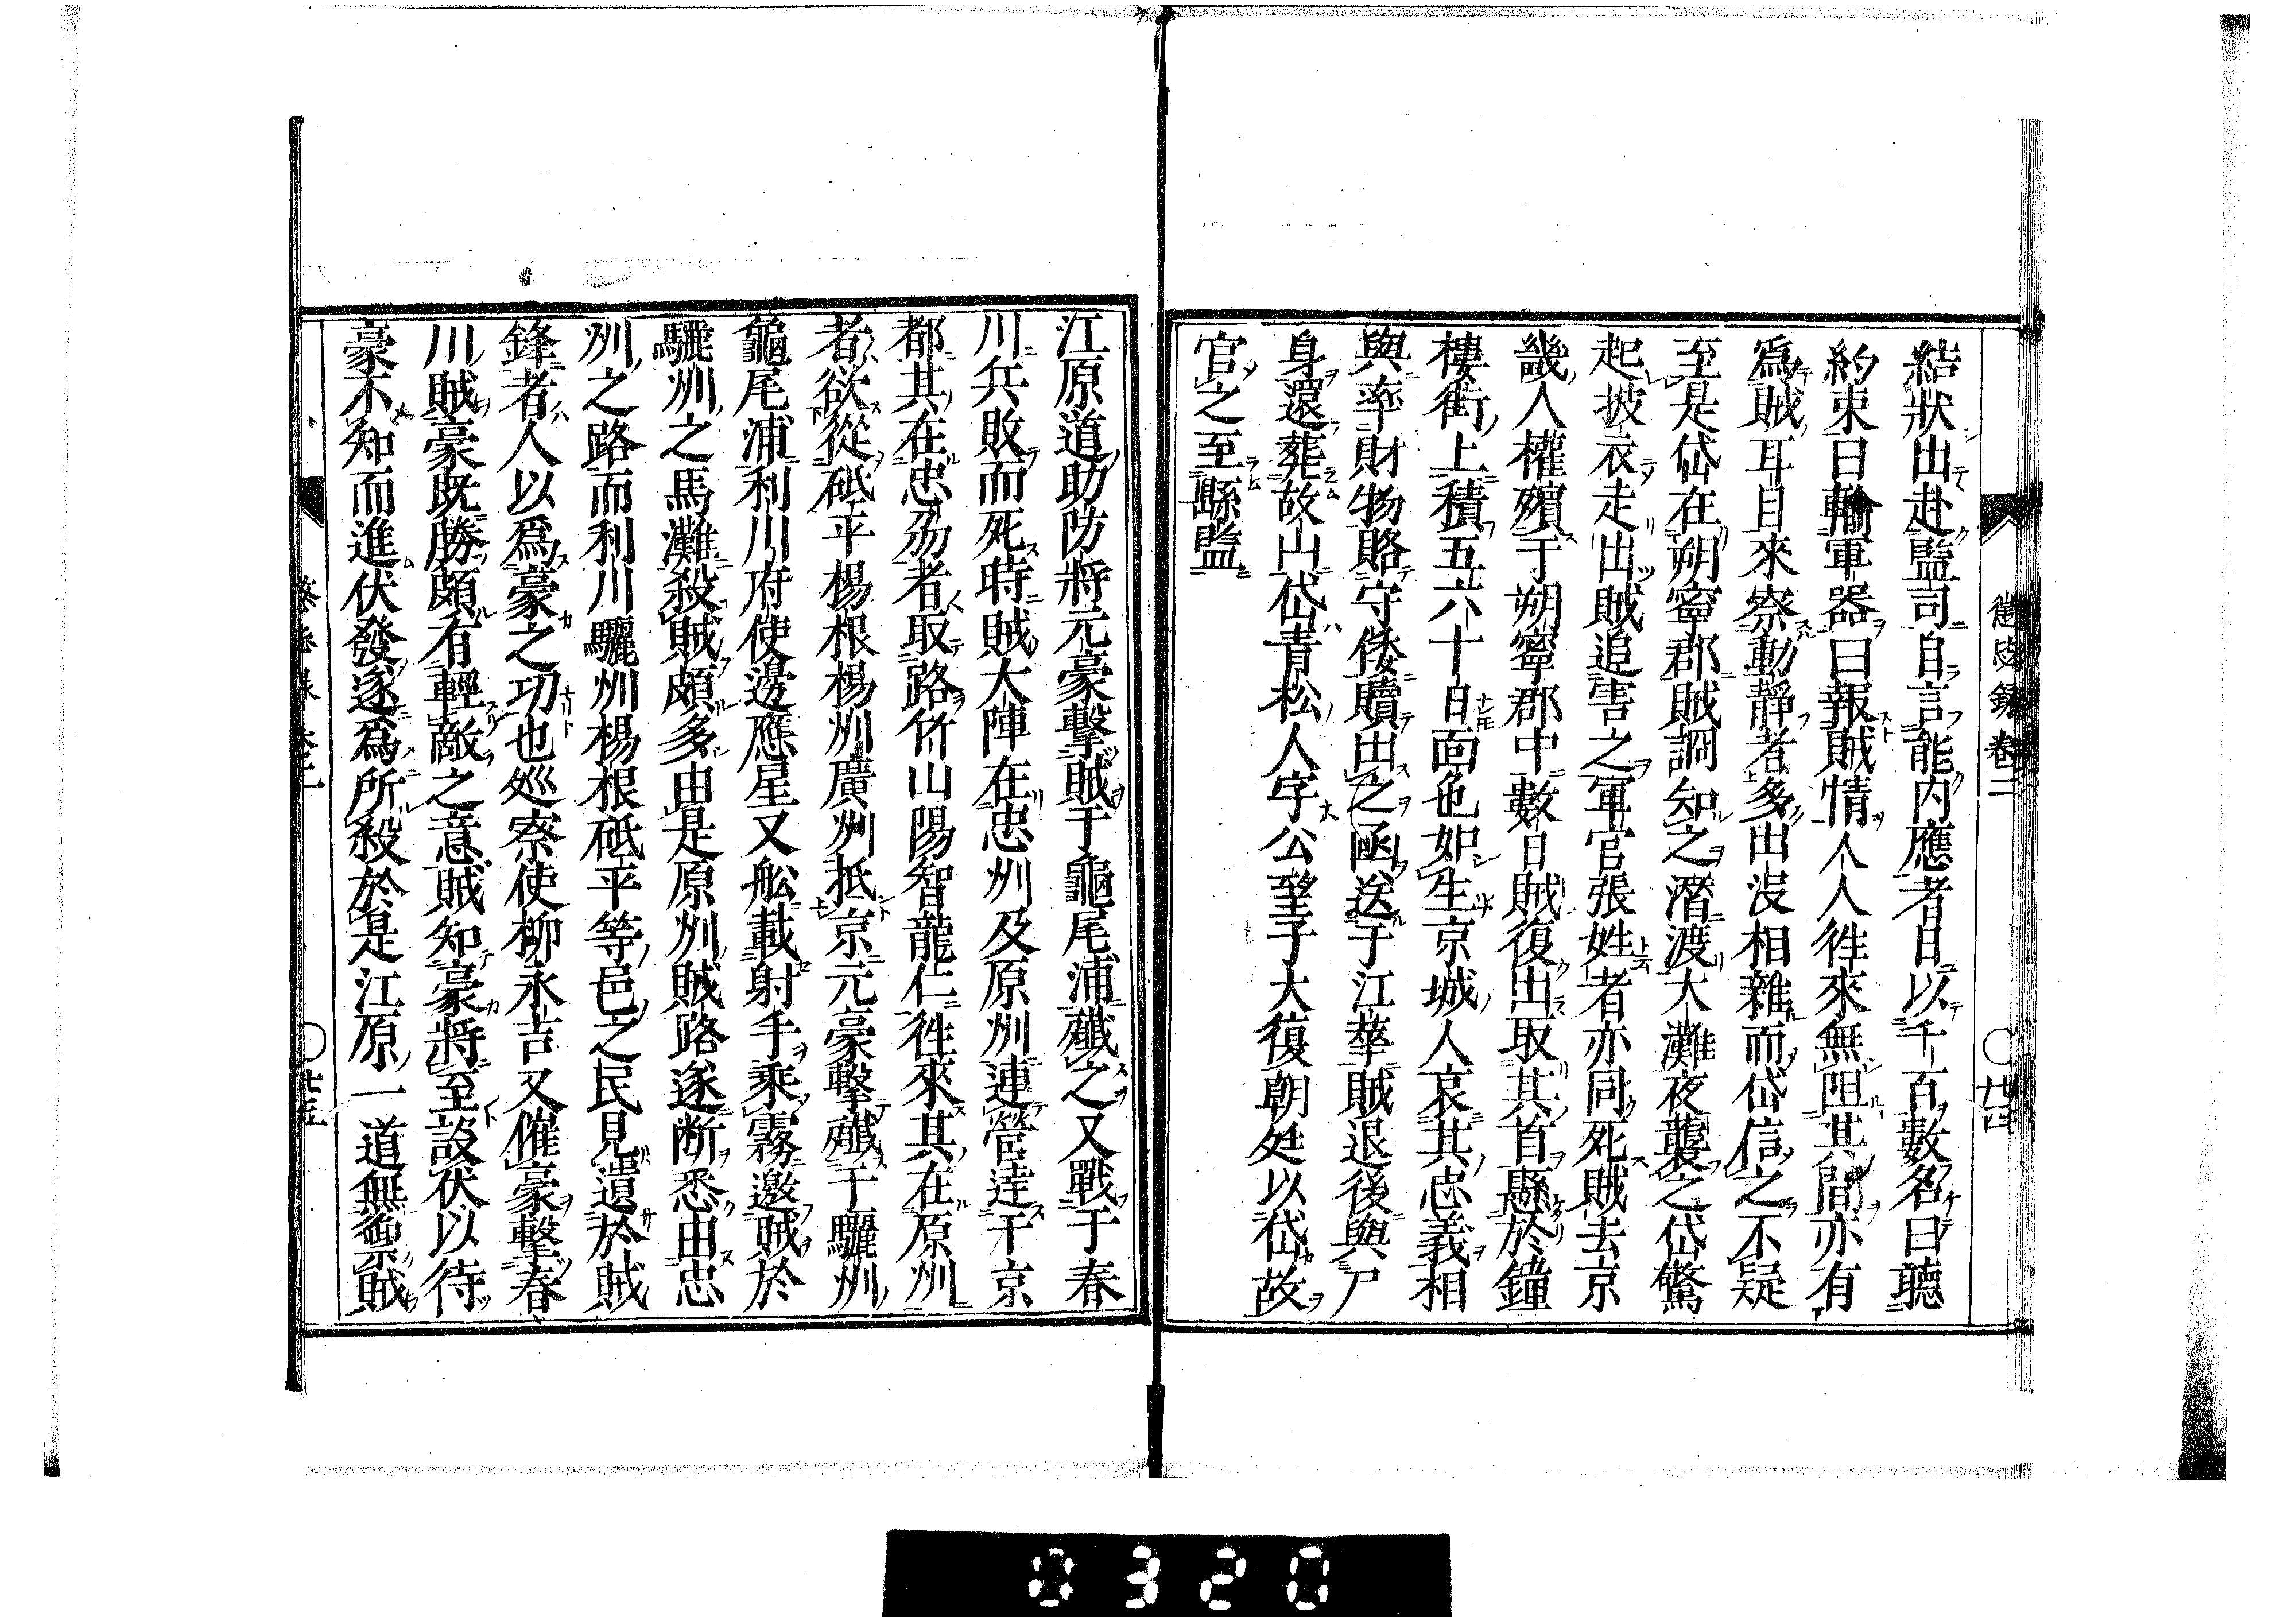 懲毖録卷二
〇廿四
結狀出赴監司自言能内應者日以千百數名曰聽
約束曰輸軍器曰報賊情人人徃來無阻其間亦有
爲賊耳目來察動靜者多出沒相雜而岱信之不疑
至是岱在朔寧郡賊詗知之潛渡大灘夜襲之岱驚
起披衣走出賊追害之軍官張姓者亦同死賊去京
畿人權殯于朔寧郡中數日賊復出取其首懸於鐘
樓街上積五六十日面色如生京城人哀其忠義相
與率財物賂守倭贖出之函送于江華賊退後與尸
身還葬故山岱青松人字公望子大復朝廷以岱故
官之至縣監
江原道助防將元豪擊賊于龜尾浦殲之又戰于春
川兵敗而死時賊大陣在忠州及原州連營達于京
都其在忠州者取路竹山陽智龍仁徃來其在原州
者欲從砥平楊根楊州廣州抵京元豪擊殲于驪州
龜尾浦利川府使邊應星又舩載射手乘霧邀賊於
驪州之馬灘殺賊頗多由是原州賊路遂断悉由忠
州之路而利川驪州楊根砥平等邑之民見遺於賊
鋒者人以爲豪之功也巡察使柳永吉又催豪擊春
川賊豪既勝頗有輕敵之意賊知豪將至設伏以待
豪不知而進伏發遂爲所殺於是江原一道無禦賊
〇廿五
0320